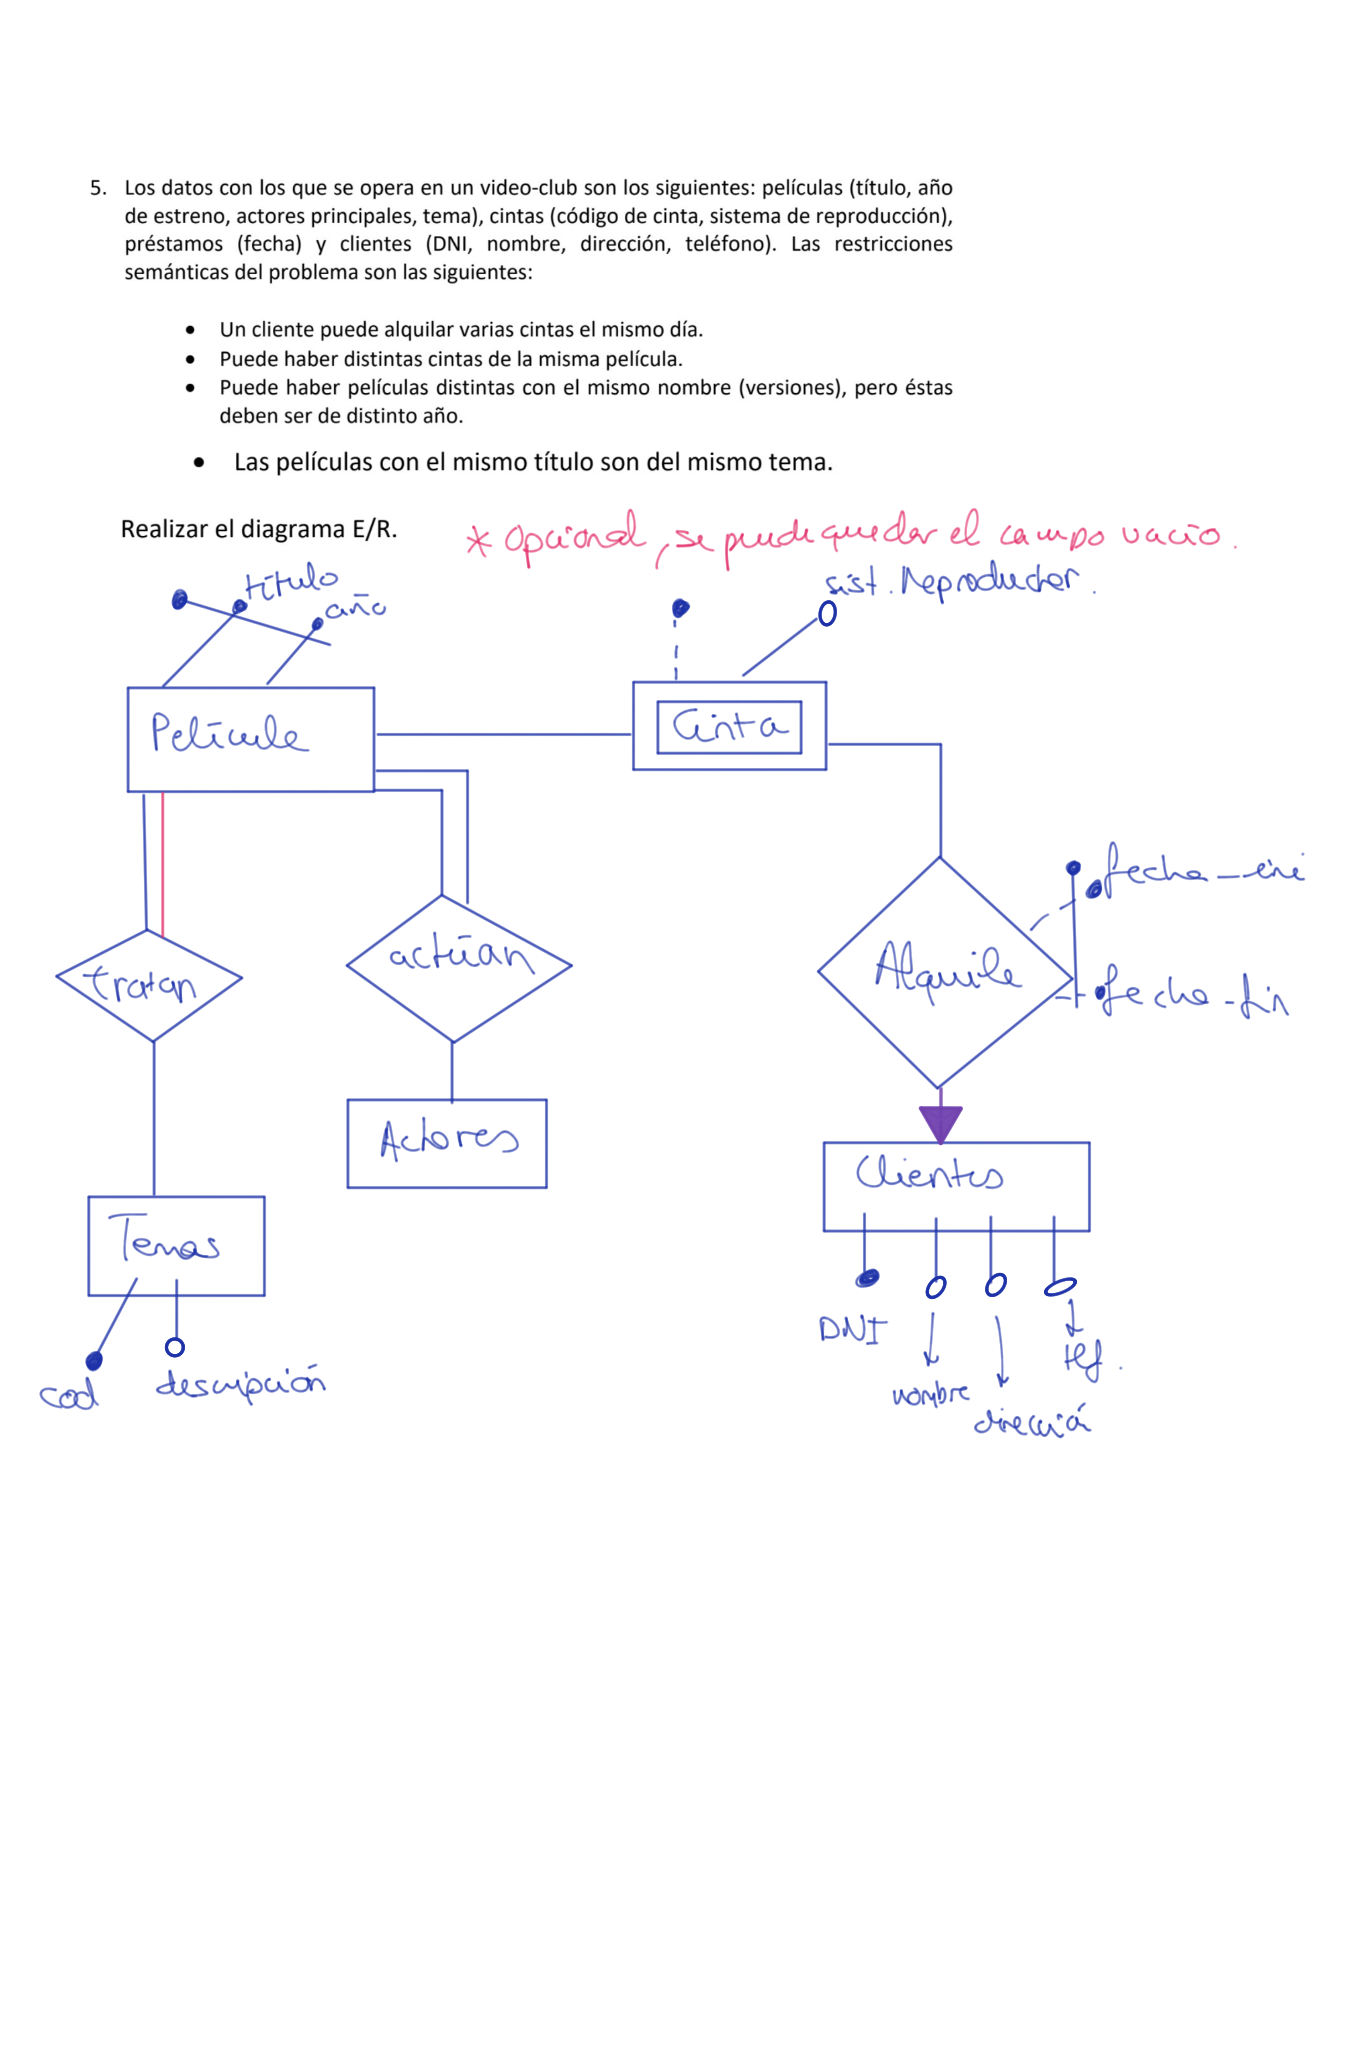 5. Los datos con los que se opera en un video-club son los siguientes: películas (título, año
de estreno, actores principales, tema), cintas (código de cinta, sistema de reproducción),
préstamos (fecha) y clientes (DNI, nombre, dirección, teléfono). Las restricciones
semánticas del problema son las siguientes:
• Un cliente puede alquilar varias cintas el mismo día.
• Puede haber distintas cintas de la misma película.
• Puede haber películas distintas con el mismo nombre (versiones), pero éstas
deben ser de distinto año.
• Las películas con el mismo título son del mismo tema.
Realizar el diagrama E/R.
* Opcional, se puede quedar el campo vacío.
título
año
sist. Reproductor.
Película
Cinta
fecha_ini
tratan
actúan
Alquila
fecha_fin
Actores
Clientes
Temas
DNI
nombre
dirección
tlf.
cod
descripción